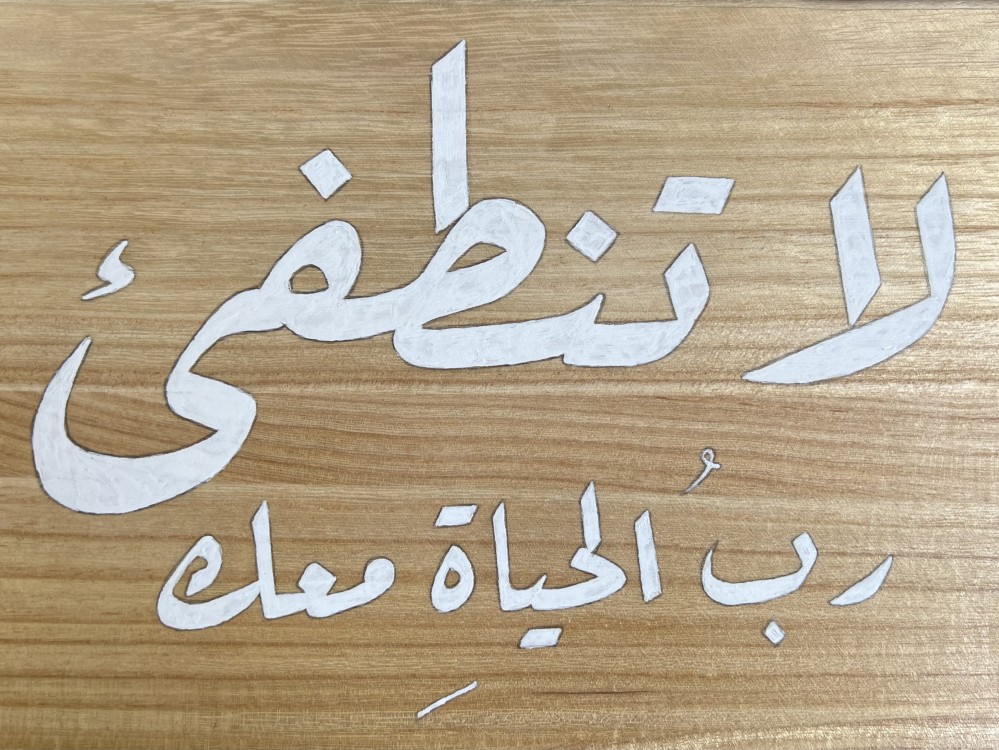 لا تنطفئ
ربُ الحياةِ معك